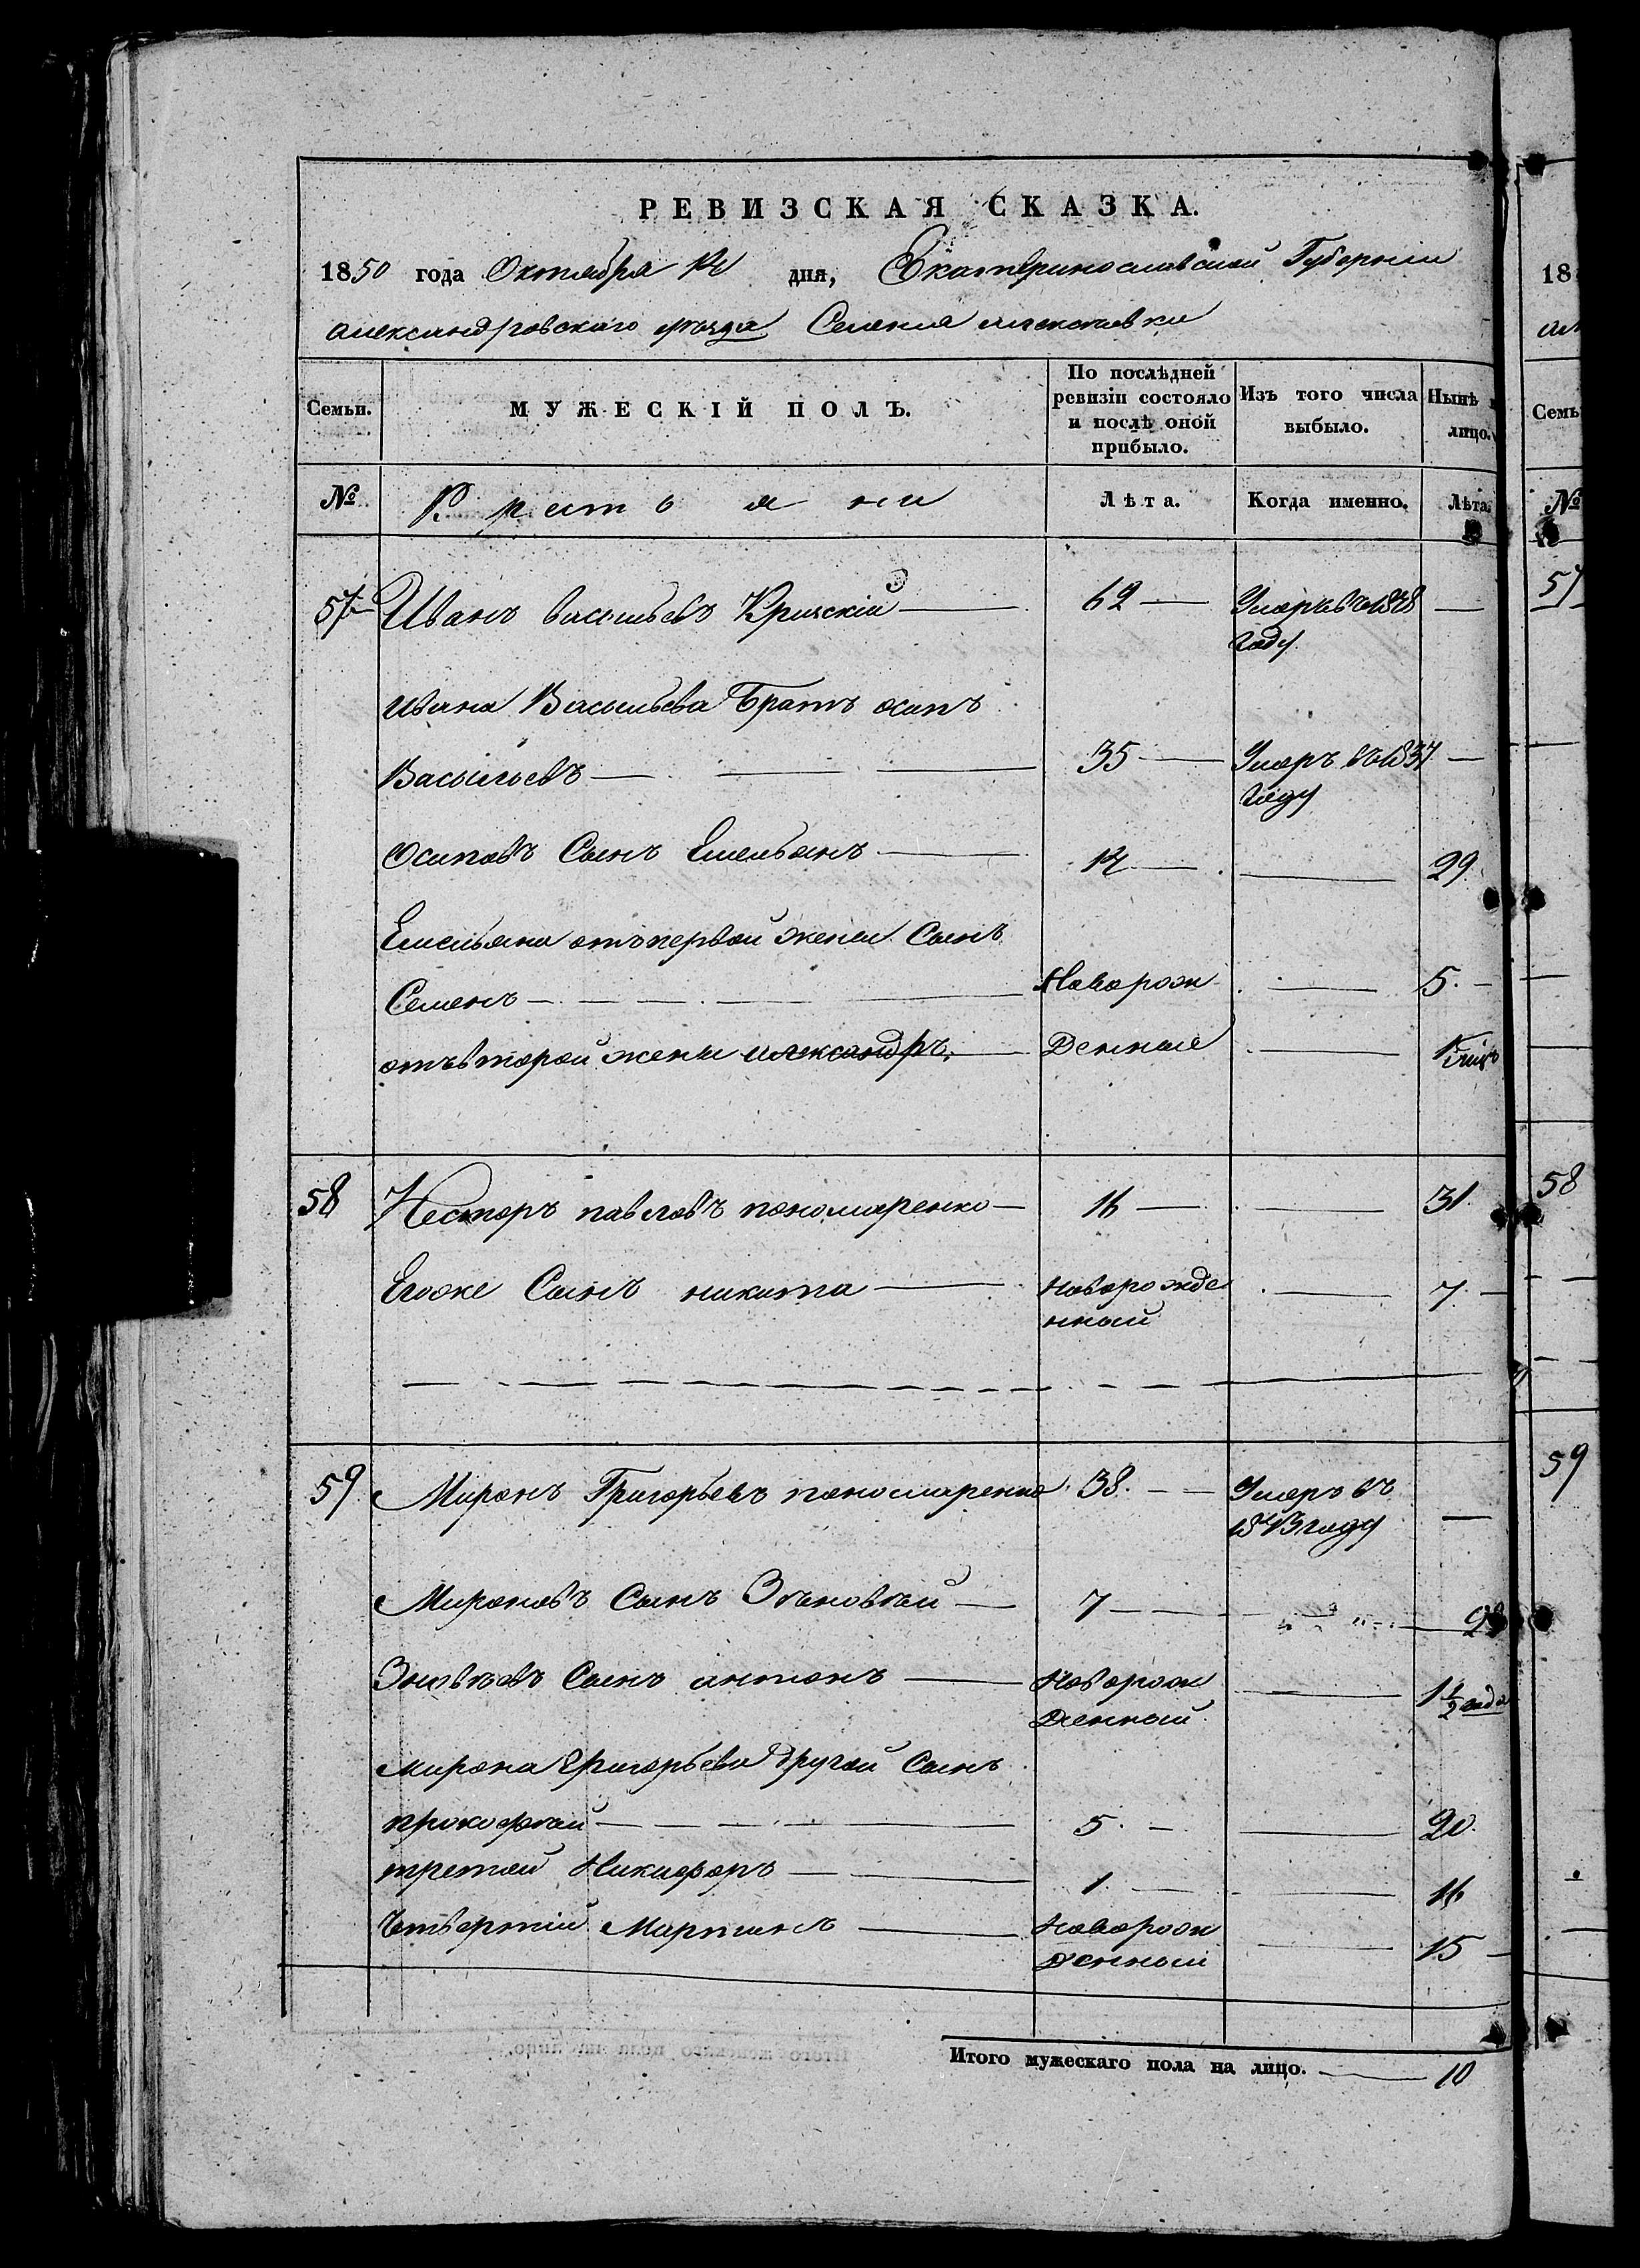 РЕВИЗСКАЯ СКАЗКА.
1850 года Октября 14 дня, Екатеринославской Губернии
александровскаго уезда Селения
Семьи. МУЖЕСКІЙ ПОЛЪ. По послѣдней ревизіи состояло и послѣ оной прибыло. Изъ того числа выбыло. Нынѣ лицо.
№ Крестьяни Лѣта. Когда именно. Лѣта.
57 Иванъ васильевъ 62 Умеръ въ 1848
году
Ивана Васильева Братъ осипъ
Васильевъ 35 Умеръ въ 1837
году
Осиповъ Сынъ Емельянъ 14 29
Емельяна отъ первой жены Сынъ
Семенъ Новорож 5
отъ второй жены александръ Денные
58 Несторъ павловъ пономаренко 16 31
Егоже Сынъ никита новорожде 7
нный
59 Миронъ Григорьевъ пономаренко 38 Умеръ въ
1843 году
Мироновъ Сынъ Зѣновѣй 7
Зновѣевъ Сынъ антонъ Новорож 1 1/2 года
Денный
Мирона Григорьева другой Сынъ
прокофѣй 5 20
третий Никифоръ 1 16
Четвертій Мартинъ Новорож 15
денный
Итого мужескаго пола на лицо. 10
18
Семь
№
57
58
59